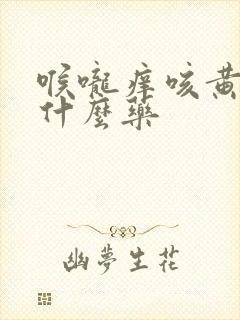 喉嚨痒咳黄
什麼藥
幽夢生花